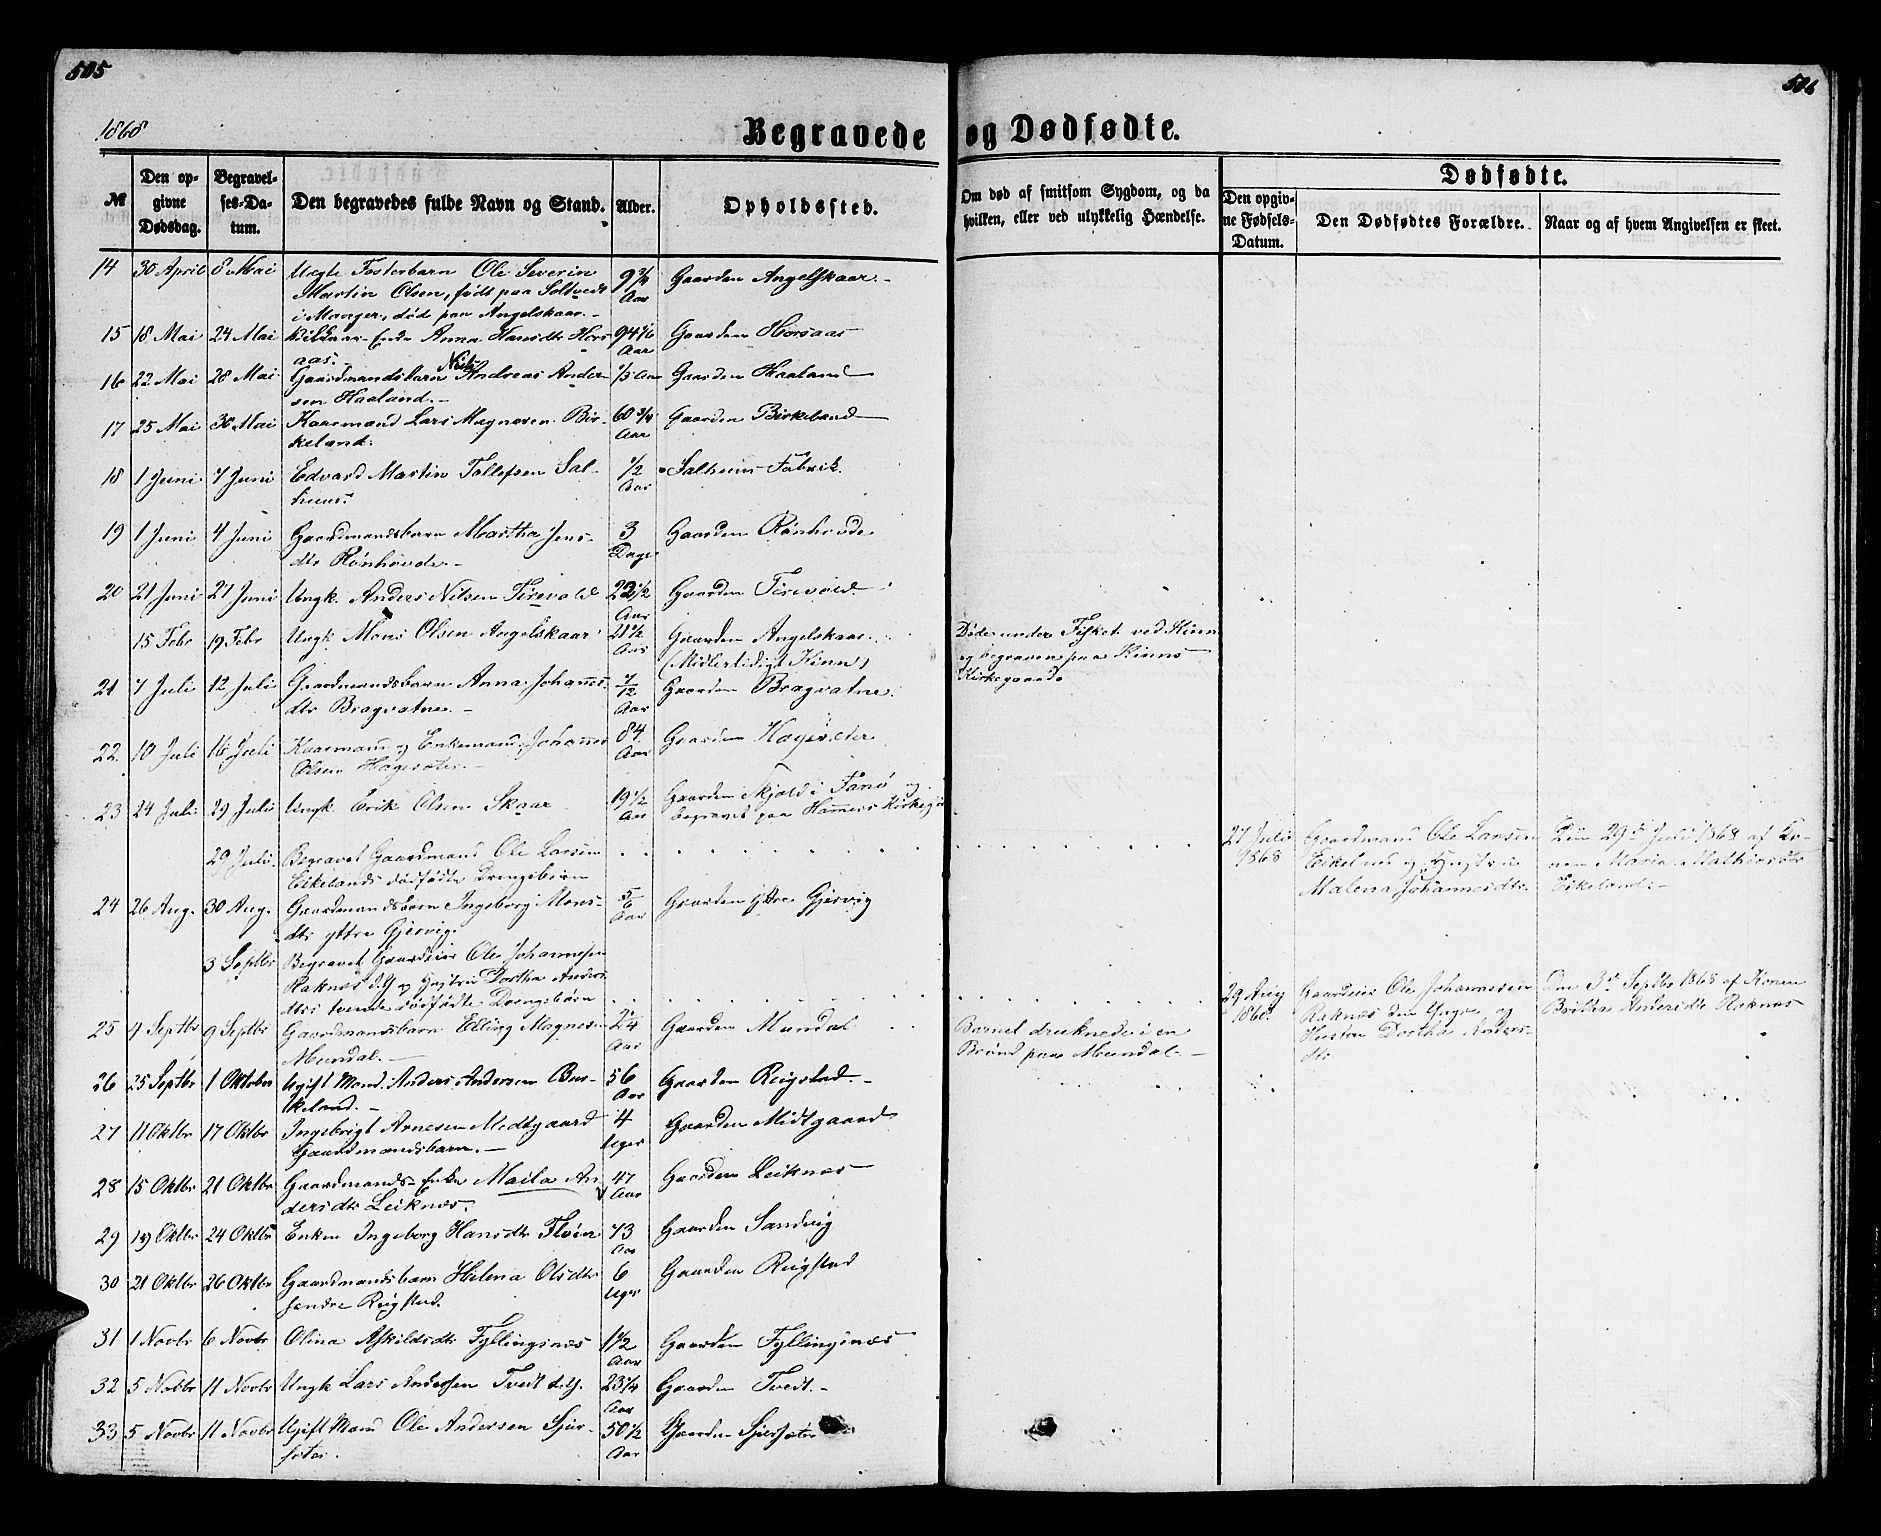 505
506
1868
Begravede og Dødfødte.
№
Den opgivne Dødsdag.
Begravelses-Datum.
Den begravedes fulde Navn og Stand.
Alder.
Opholdssted.
Om død af smitsom Sygdom, og da hvilken, eller ved ulykkelig Hændelse.
Dødfødte.
Den opgivne Fødsels-Datum.
Den Dødfødtes Forældre.
Naar og af hvem Angivelsen er skeet.
14 30 April 8 Mai Uægte Fosterbarn Ole Severin 9 3/4 Aar Gaarden Angelskaar.-
Martin Olsen, født paa Soltvedt
i Manger, død paa Angelskaar.-
15 18 Mai 24 Mai Enke Anna Hansdtr Hors- Aar Gaarden Horsaas
aas.-
16 22 Mai 28 Mai Gaardmandsbarn Nils Andreas Ander- 1/3 Aar Gaarden Haaland
sen Haaland.-
17 25 Mai 30 Mai Kaarmand Lars Magnesen Bir- 60 3/4 Aar Gaarden Birkeland
keland.
18 1 Juni 7 Juni Edvard Martin Tollefsen Sal- 1/2 Aar Salhuus Fabrik.
huus.
19 1 Juni 4 Juni Gaardmandsbarn Martha Jens- 3 Dage Gaarden Rønhovde
dtr Rønhovde.-
20 21 Juni 27 Juni Ungk. Anders Nilsen Tirevold 22 1/2 Aar Gaarden Tirevold.
15 Febr 19 Febr Ungk. Mons Olsen Angelskaar 21 1/2 Aar Gaarden Angelskaar. Døde under Fisket ved Kinn
(Midlertidigt Kinn) og begraven paa Kinns
Kirkegaard
21 7 Juli 12 Juli Gaardmandsbarn Anna Johannes- 7/12 Aar Gaarden Bragvatne.
dtr Bragvatne.-
22. 10 Juli 16 Juli Kaarmand og Enkemand Johannes 84 Aar Gaarden Hagesæter
Olsen Hagesæter.-
23 24 Juli 29 Juli Ungk Erik Olsen Skaar 19 1/2 Aar Gaarden Skjold i Fanø og
begravet paa Hammers Kirkeg.
29 Juli Begravet Gaardmand Ole Larsen 27 Juli 1868 Gaardmand Ole Larsen Den 29de Juli 1868 af Ko-
Eikelands dødfødte Drengebarn Eikeland og Hustru nen Maria Mathiasdtr
Malena Johannesdtr. Eikeland.-
24 26 Aug. 30 Aug. Gaardmandsbarn Ingeborg Mons- 5/6 Aar Gaarden ytre Gjervig
dtr yttre Gjervig.
3 Septbr Begravet Gaardeier Ole Johannesen
Raknes d.y. og Hustru Dortha Anders-
dtrs tvende dødfødte Drengebørn 29 Aug 1868. Gaardeier Ole Johannesen Den 3de Septbr 1868 af Konen
Raknes den Yngre og Britha Andersdtr Raknes
Hustru Dortha Anders-
dtr
25 4 Septbr 9 Septbr Gaardmandsbarn Elling Magnesen 2 1/4 Aar Gaarden Mundal Barnet druknede i en
Mundal.- Brønd paa Mundal.-
26 25 Septbr 1 Oktober Ugift Mand. Anders Andersen 56 Aar Gaarden Reigstad.-
keland.-
27 11 Oktbr 17 Oktbr Ingebrigt Arnesen Midtgaard 4 Uger Gaarden Midtgaard
Gaardmandsbarn.-
28 15 Oktbr 21 Oktbr Gaardmands-Enke Maila An- 47 Aar Gaarden Leiknes
dersdtr Leiknes.
29 19 Oktbr 24 Oktbr Enken Ingeborg Hansdtr Fløen 73 Aar Gaarden Sandvig
30 21 Oktbr 26 Oktbr Gaardmandsbarn Helena Olsdtr 6 Uger Gaarden Reigstad
søndre Reigstad.
31 1 Novbr 6 Novbr Olina Askildsdtr Fyllingsnæs 1 1/2 Aar Gaarden Fyllingsnæs
32 5 Novbr 11 Novbr Ungk Lars Andersen Tvedt d.y. 23 1/4 Aar Gaarden Tvedt.-
33 5 Novbr 11 Novbr Ugift Mand Ole Andersen Sjur- 50 1/2 Aar Gaarden Sjursæter
sæter.